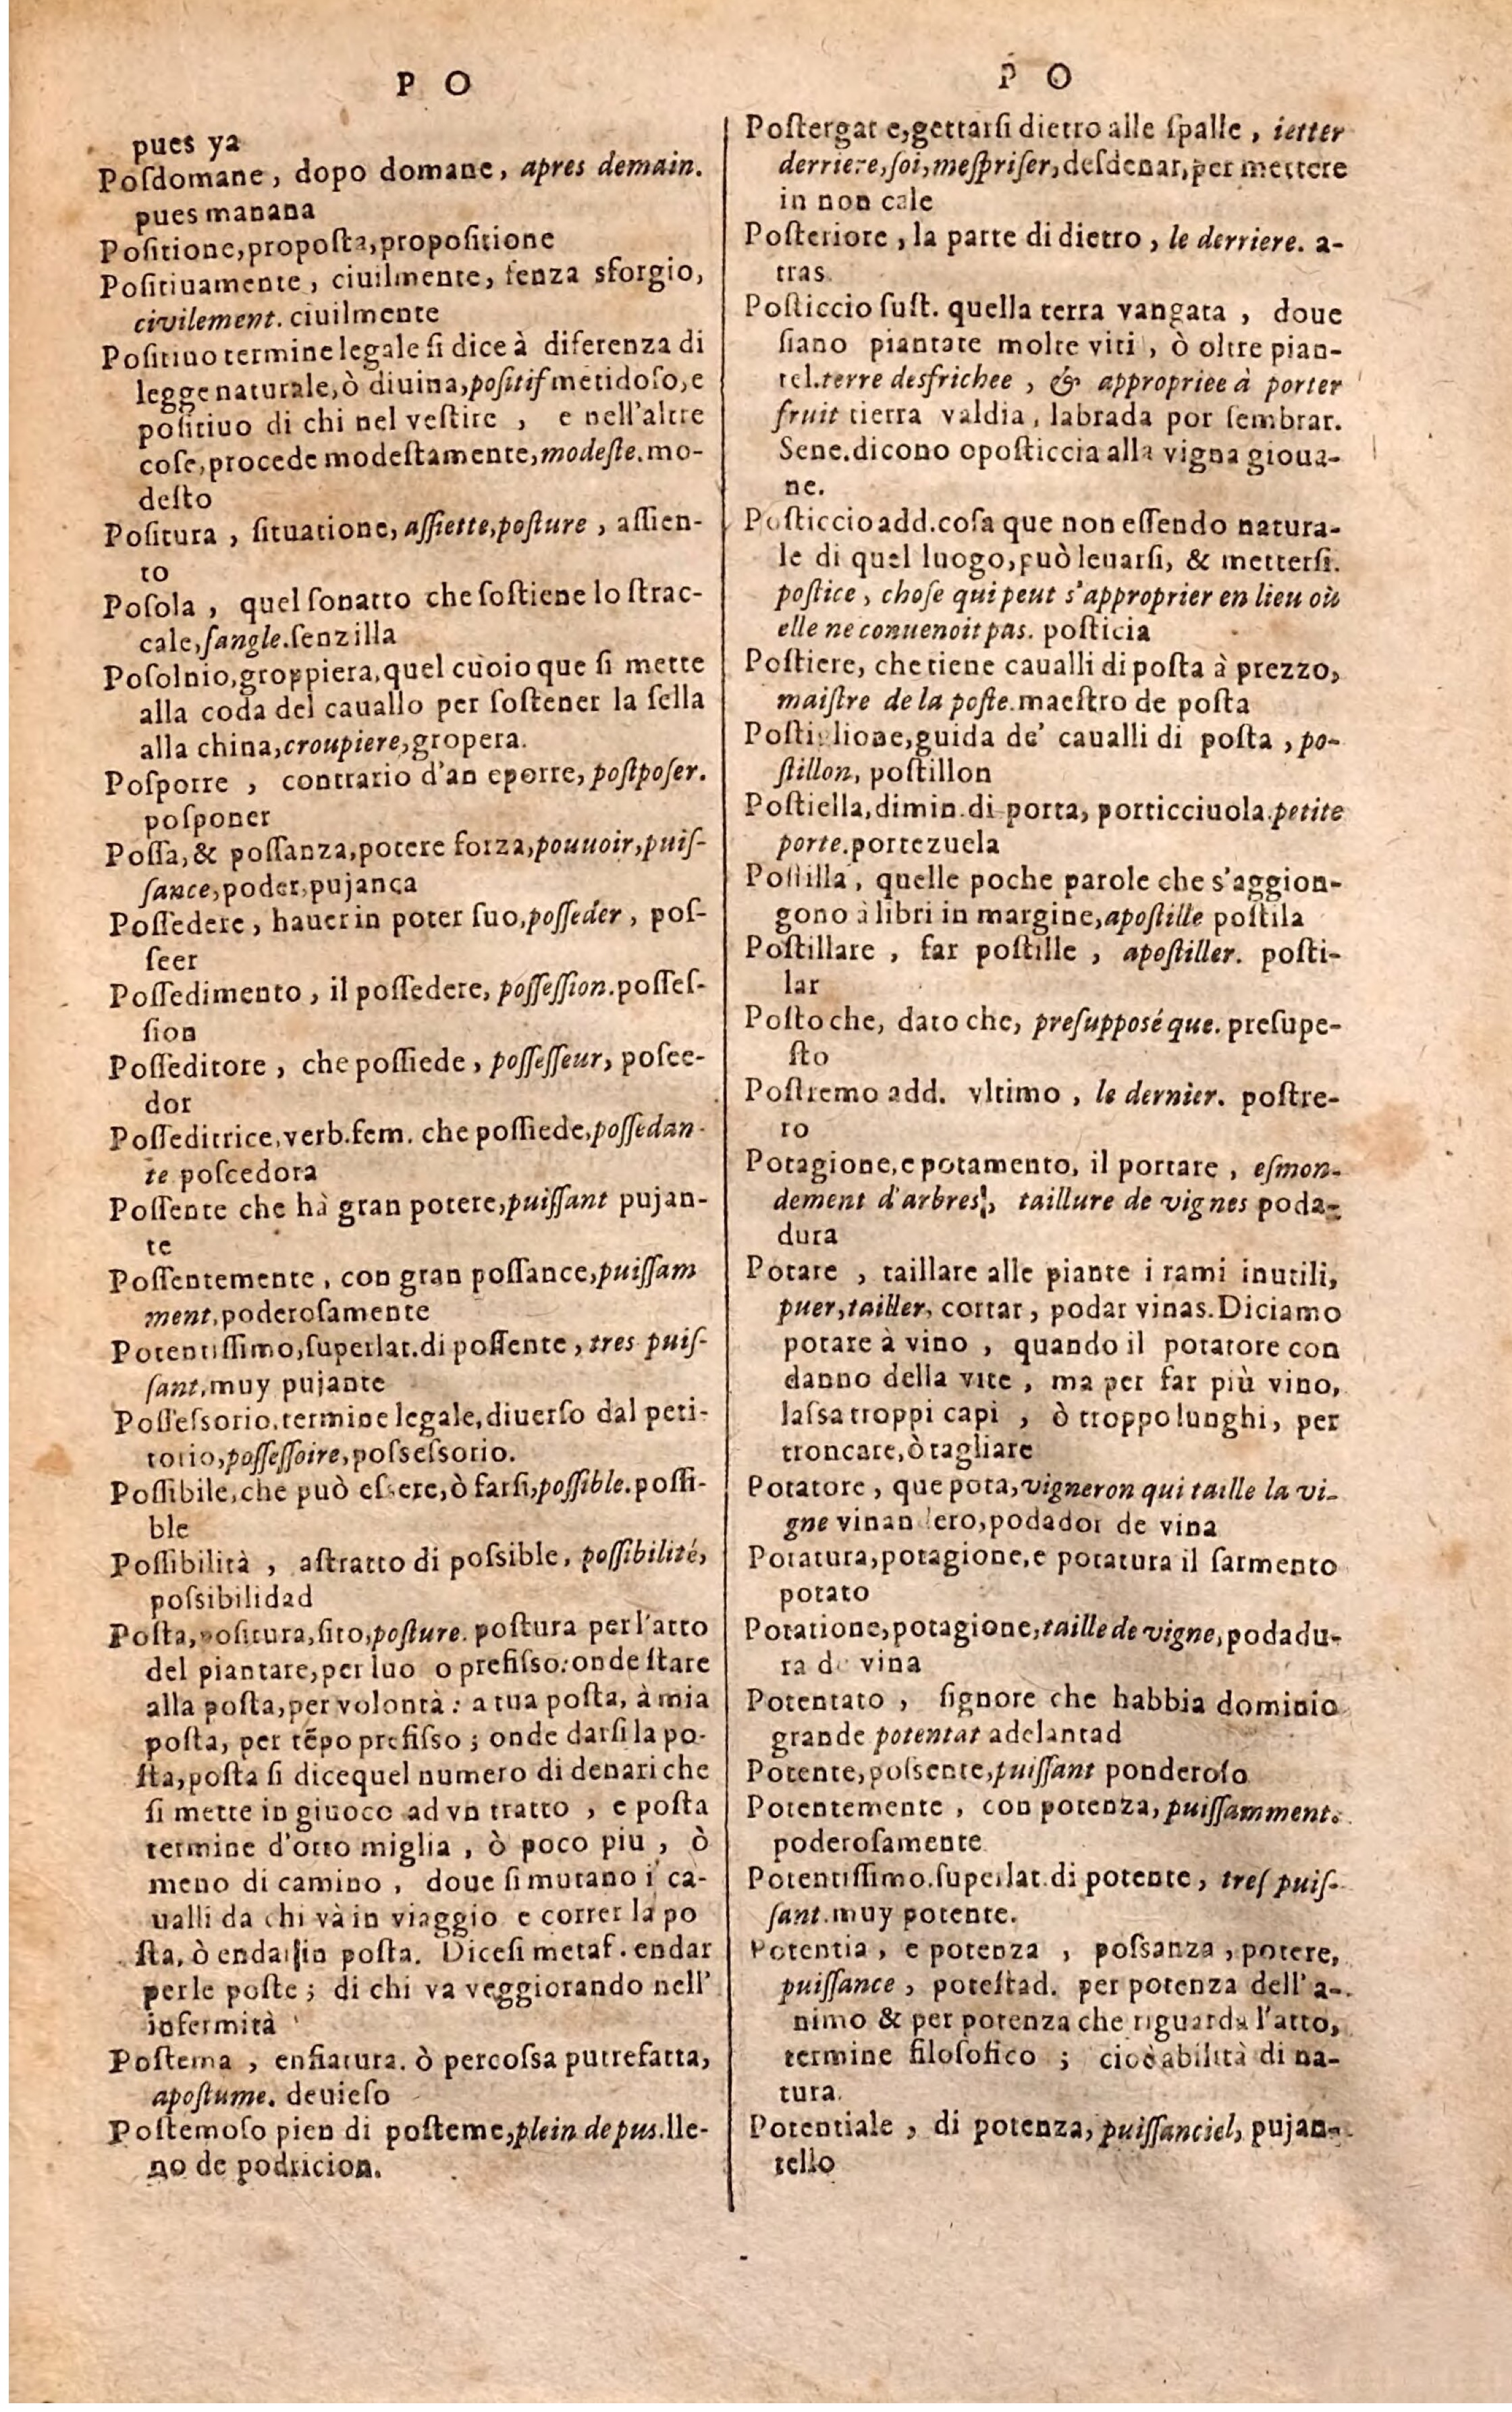 P O
pues ya
Poſdomane, dopo domane, apres demain.
pues manana
Poſitione, propoſta, propoſitione
Poſitiuamente, ciuilmente, ſenza sforgio,
civilement. ciuilmente
Poſitiuo termine legale ſi dice à diferenza di
legge naturale, ò diuina, poſitif metidoſo, e
poſitiuo di chi nel veſtire, e nell'altre
coſe, procede modeſtamente, modeſte. mo-
deſto
Poſitura, ſituatione, aſſiette, poſture, aſſien-
to
Poſola, quel ſonatto che ſoſtiene lo ſtrac-
cale, ſangle. ſenzilla
Poſolnio, groppiera, quel cuoio que ſi mette
alla coda del cauallo per ſoſtener la ſella
alla china, croupiere, gropera.
Poſporre, contrario d'an eporre, poſtpoſer.
poſponer
Poſſa, & poſſanza, potere forza, pouuoir, puiſ-
ſance, poder, pujança
Poſſedere, hauer in poter ſuo, poſſeder, poſ-
ſeer
Poſſedimento, il poſſedere, poſſeſſion. poſſeſ-
ſion
Poſſeditore, che poſſiede, poſſeſſeur, poſee-
dor
Poſſeditrice, verb. fem. che poſſiede, poſſedan-
te poſcedora
Poſſente che hà gran potere, puiſſant pujan-
te
Poſſentemente, con gran poſſance, puiſſam
ment, poderoſamente
Potentiſſimo, ſuperlat. di poſſente, tres puiſ-
ſant, muy pujante
Poſſeſsorio, termine legale, diuerſo dal peti-
torio, poſſeſſoire, poſseſsorio.
Poſſibile, che può eſsere, ò farſi, poſſible. poſſi-
ble
Poſſibilità, aſtratto di poſsible, poſſibilité,
poſsibilidad
Poſta, poſitura, ſito, poſture. poſtura per l'atto
del piantare, per luo o prefiſso: onde ſtare
alla poſta, per volontà: a tua poſta, à mia
poſta, per tẽpo prefiſso; onde darſi la po-
ſta, poſta ſi dicequel numero di denari che
ſi mette in giuoco ad vn tratto, e poſta
termine d'otto miglia, ò poco piu, ò
meno di camino, doue ſi mutano i ca-
ualli da chi và in viaggio e correr la po
ſta, ò endar in poſta. Diceſi metaf. endar
per le poſte; di chi va veggiorando nell'
infermità
Poſtema, enfiatura. ò percoſsa putrefatta,
apoſtume. deuieſo
Poſtemoſo pien di poſteme, plein de pus. lle-
no de podricion.
P O
Poſtergar e, gettarſi dietro alle ſpalle, ietter
derriere, ſoi, meſpriſer, deſdenar, per mettere
in non cale
Poſteriore, la parte di dietro, le derriere. a-
tras
Poſticcio ſuſt. quella terra vangata, doue
ſiano piantate molte viti, ò oltre pian-
tel. terre desfrichee, & appropriee à porter
fruit tierra valdia, labrada por ſembrar.
Sene. dicono opoſticcia alla vigna gioua-
ne.
Poſticcio add. coſa que non eſſendo natura-
le di quel luogo, può leuarſi, & metterſi.
poſtice, choſe qui peut s'approprier en lieu où
elle ne conuenoit pas. poſticia
Poſtiere, che tiene caualli di poſta à prezzo,
maiſtre de la poſte. maeſtro de poſta
Poſtiglione, guida de' caualli di poſta, po-
ſtillon, poſtillon
Poſtiella, dimin. di porta, porticciuola. petite
porte. portezuela
Poſtilla, quelle poche parole che s'aggion-
gono à libri in margine, apoſtille poſtila
Poſtillare, far poſtille, apoſtiller. poſti-
lar
Poſto che, dato che, preſuppoſé que. preſupe-
ſto
Poſtremo add. vltimo, le dernier. poſtre-
ro
Potagione, e potamento, il portare, eſmon-
dement d'arbres, taillure de vignes poda-
dura
Potare, taillare alle piante i rami inutili,
puer, tailler, cortar, podar vinas. Diciamo
potare à vino, quando il potatore con
danno della vite, ma per far più vino,
laſsa troppi capi, ò troppo lunghi, per
troncare, ò tagliare
Potatore, que pota, vigneron qui taille la vi-
gne vinandero, podador de vina
Potatura, potagione, e potatura il ſarmento
potato
Potatione, potagione, taille de vigne, podadu-
ra de vina
Potentato, ſignore che habbia dominio
grande potentat adelantad
Potente, poſsente, puiſſant ponderoſo
Potentemente, con potenza, puiſſamment.
poderoſamente
Potentiſſimo. ſuperlat. di potente, treſ puiſ-
ſant. muy potente.
Potentia, e potenza, poſsanza, potere,
puiſſance, poteſtad. per potenza dell'a-
nimo & per potenza che riguarda l'atto,
termine filoſofico; cioè abilità di na-
tura.
Potentiale, di potenza, puiſſanciel, pujan-
tello